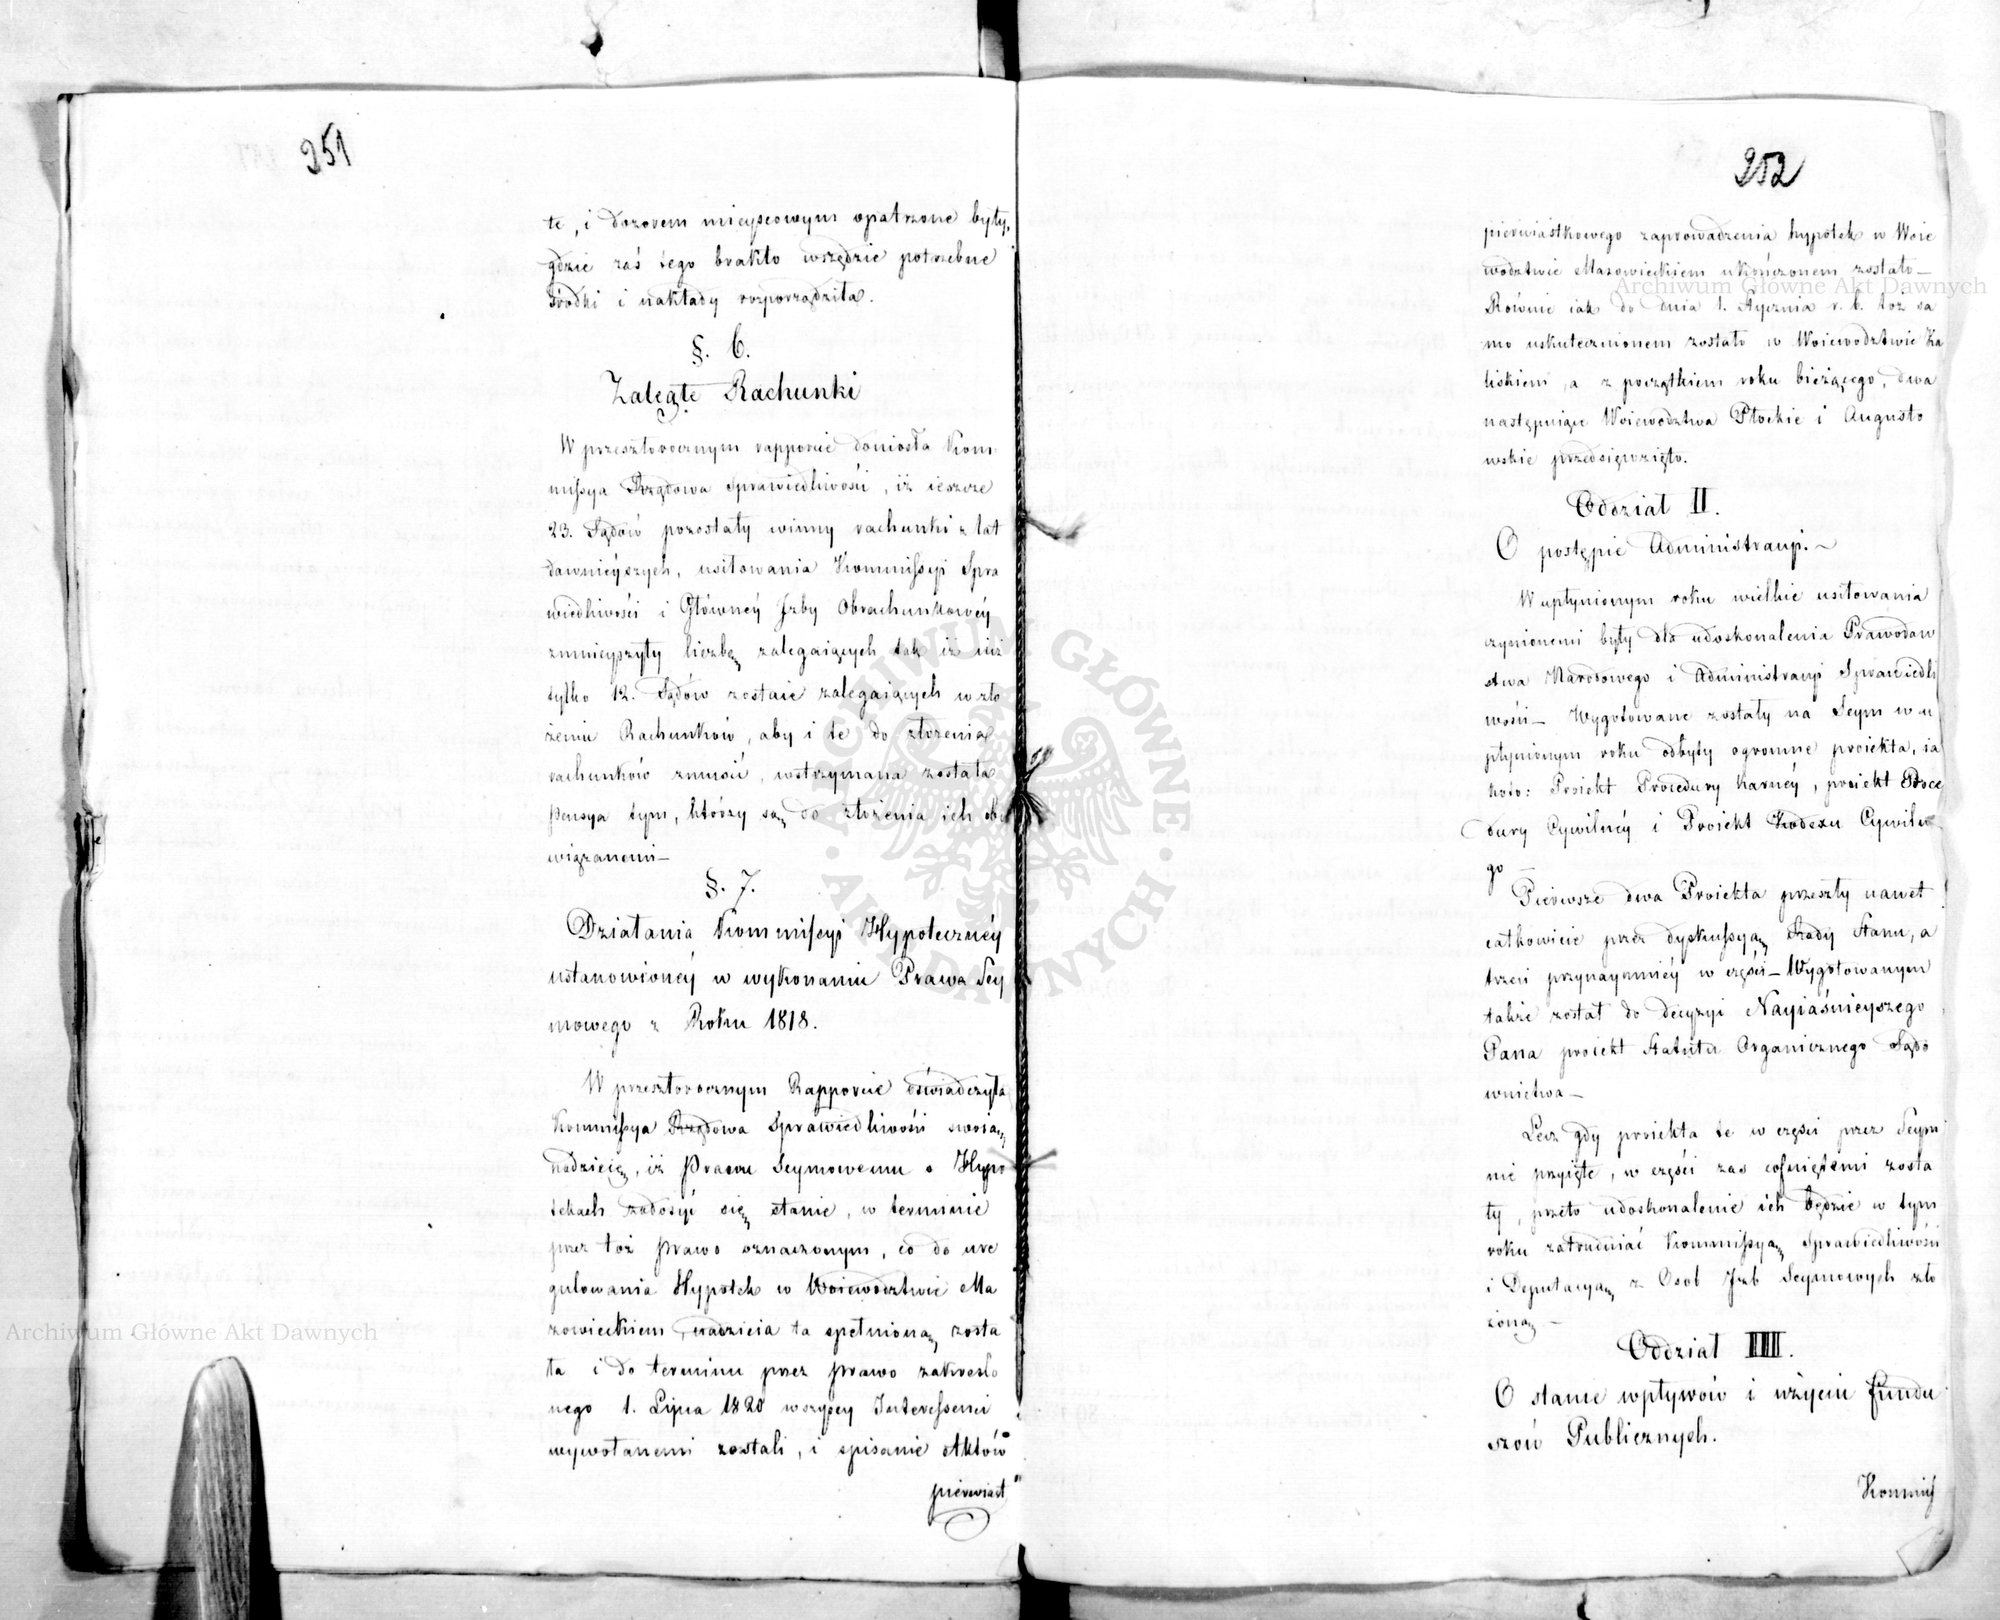 251
te, i dozorem mieyscowym opatrzone były,
gdzie zaś tego brakło wszędzie potrzebne
środki i nakłady rozporządziła.
§. 6.
Zaległe Rachunki
W przeszłorocznym rapporcie doniosła Kom
missya Rządowa Sprawiedliwości, iż ieszcze
23. Sądów pozostały winny rachunki z lat
dawnieyszych, usiłowania Kommissyi Spra
wiedliwości i Główney Izby Obrachunkowey
zmnieyszyły liczbę zalegaiących tak iż iuż
tylko 12. Sądów zostaie zalegaiących w zło
żeniu Rachunków, aby i te do złożenia
rachunków zmusić, wstrzymana została
Pensya tym, którzy są do złożenia ich obo
wiązanemi—
§. 7.
Działania Kommissyi Hypoteczney
ustanowioney w wykonaniu Prawa Sey
mowego z Roku 1818.
W przeszłorocznym Rapporcie oświadczyła
Kommissya Rządowa Sprawiedliwości swoią
nadzieię, iż Prawu Seymowemu o Hypo
tekach zadosyć się stanie, w terminie
przez toż Prawo oznaczonym, co do ure
gulowania Hypotek w Woiewodztwie Ma
zowieckiem, nadzieia ta spełnioną zosta
ła i do terminu przez Prawo zakreślo
nego 1. Lipca 1820 wszyscy Interessenci
wywołanemi zostali, i spisanie Aktów
pierwiast
252
pierwiastkowego zaprowadzenia hypotek w Woie
wodztwie Mazowieckiem ukończonem zostało—
Równie iak do dnia 1. Stycznia r. b. toż sa
mo uskutecznionem zostało w Woiewodztwie Ka
liskiem, a z początkiem roku bieżącego, dwa
następuiące Woiewodztwa Płockie i Augusto
wskie przedsięwzięto.
Oddział II.
O postępie Administracyi.—
W upłynionym roku wielkie usiłowania
czynionemi były dla udoskonalenia Prawodaw
stwa Narodowego i Administracyi Sprawiedli
wości— Wygotowane zostały na Seym w u
płynionym roku odbyty ogromne proiekta, ia
koto: Proiekt Procedury Karney, proiekt Proce
dury Cywilney i Proiekt Kodexu Cywilne
go—
Pierwsze dwa Proiekta przeszły nawet
całkowicie przez dyskussyą Rady Stanu, a
trzeci przynaymniey w części— Wygotowanym
także został do decyzyi Nayiaśnieyszego
Pana proiekt Statutu Organicznego Sądo
wnictwa—
Lecz gdy proiekta te w części przez Seym
nie przyięte, w części zaś cofniętemi zosta
ły, przeto udoskonalenie ich będzie w tym
roku zatrudniać Kommissyą Sprawiedliwości
i Deputacyą z Osob Izb Seymowych zło
żoną—
Oddział III.
O stanie wpływów i użyciu fundu
szów Publicznych.
Kommis
Archiwum Główne Akt Dawnych
Archiwum Główne Akt Dawnych
ARCHIWUM GŁÓWNE · AKT DAWNYCH ·